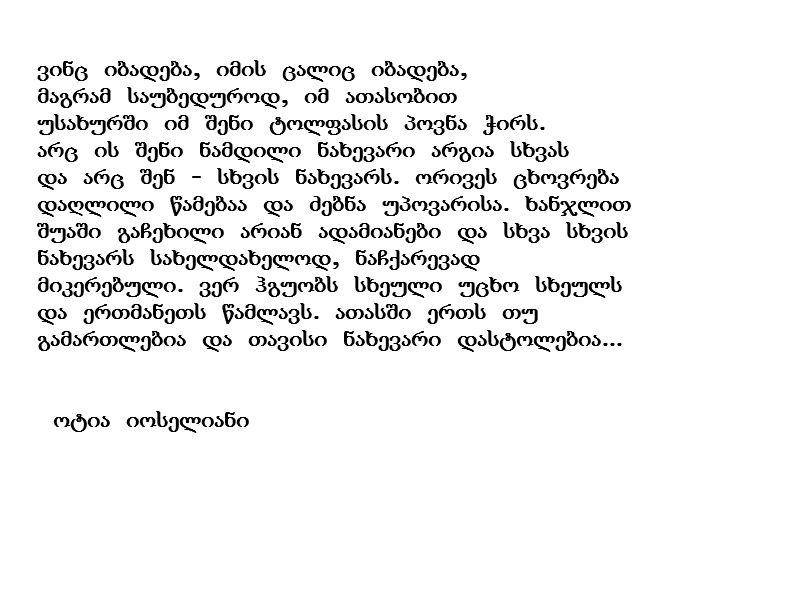 ვინც იბადება, იმის ცალიც იბადება,
მაგრამ საუბედუროდ, იმ ათასობით
უსახურში იმ შენი ტოლფასის პოვნა ჭირს.
არც ის შენი ნამდილი ნახევარი არგია სხვას
და არც შენ - სხვის ნახევარს. ორივეს ცხოვრება
დაღლილი წამებაა და ძებნა უპოვარისა. ხანჯლით
შუაში გაჩეხილი არიან ადამიანები და სხვა სხვის
ნახევარს სახელდახელოდ, ნაჩქარევად
მიკერებული. ვერ ჰგუობს სხეული უცხო სხეულს
და ერთმანეთს წამლავს. ათასში ერთს თუ
გამართლებია და თავისი ნახევარი დასტოლებია...
ოტია იოსელიანი